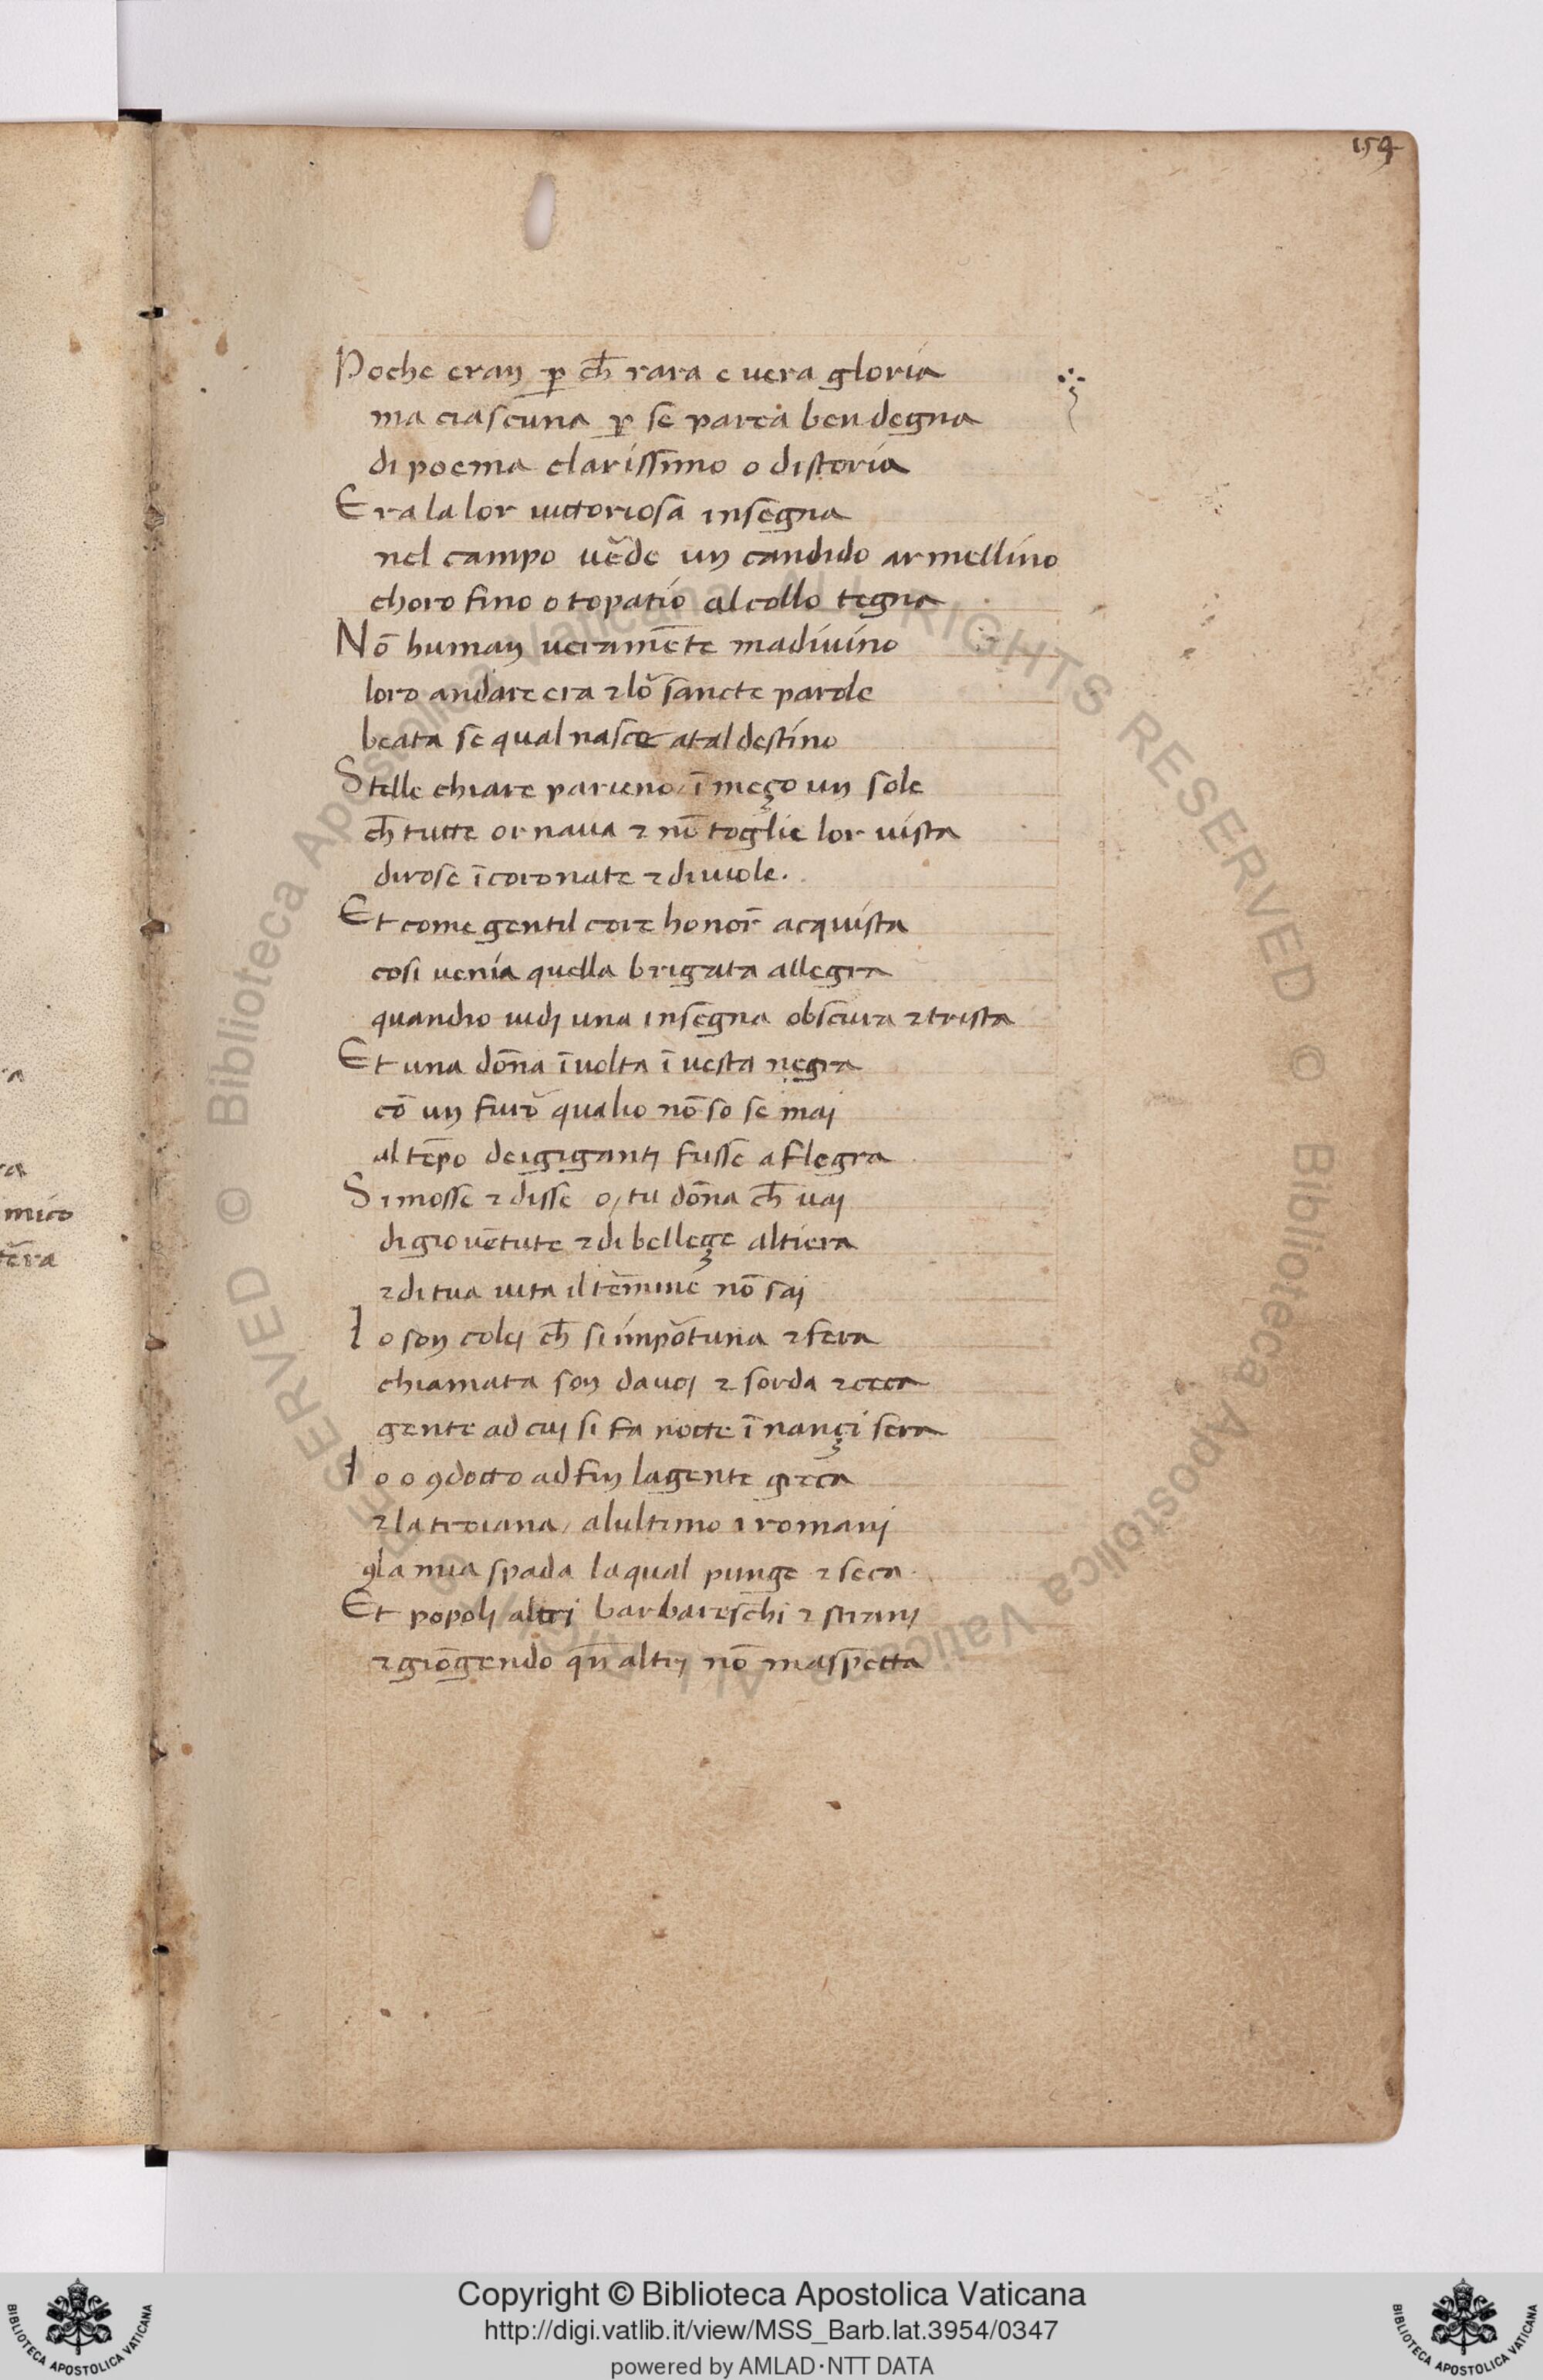 159
Poche eran ꝑ ch̄ rara e uera gloria
ma ciascuna ꝑ se parea ben degna
di poema clarissimo o distoria
Era la lor uictoriosa insegna
nel campo ue͛de un candido armellino
choro fino o topatio al collo tegna
Nō human ueramēte ma diuino
loro andare era ⁊ lo͛ sancte parole
beata se qual nasce atal destino
Stelle chiare parieno / ī meço un sole
ch̄ tutte ornaua ⁊ nō toglie lor uista
di rose īcoronate ⁊ di uiole.
Et come gentil core honor̄ acquista
cosi uenia quella brigata allegra
quandio uidi una insegna obscura ⁊ trista
Et una dōna īuolta ī uesta negra
cō un furo͛ qualio nō so se mai
al tēpo dei giganti fusse a flegra
Si mosse ⁊ disse o / tu dōna ch̄ uai
di giouētute ⁊ di belleçe altiera
⁊ di tua uita il te͛mine nō sai
Io son colei ch̄ si impo͛tuna ⁊ fera
chiamata son da uoi ⁊ sorda ⁊ ceca
gente ad cui si fa nocte īnançi sera
Io o ꝯdocto ad fin la gente greca
⁊ la troiana / alultimo i romani
ꝯla mia spada laqual punge ⁊ seca
Et popoli altri barbareschi ⁊ strani
⁊ giōgendo qn̄ altri nō maspecta
mico
te͛ra
Copyright © Biblioteca Apostolica Vaticana
http://digi.vatlib.it/view/MSS_Barb.lat.3954/0347
powered by AMLAD·NTT DATA
BIBLIOTECA APOSTOLICA VATICANA
BIBLIOTECA APOSTOLICA VATICANA